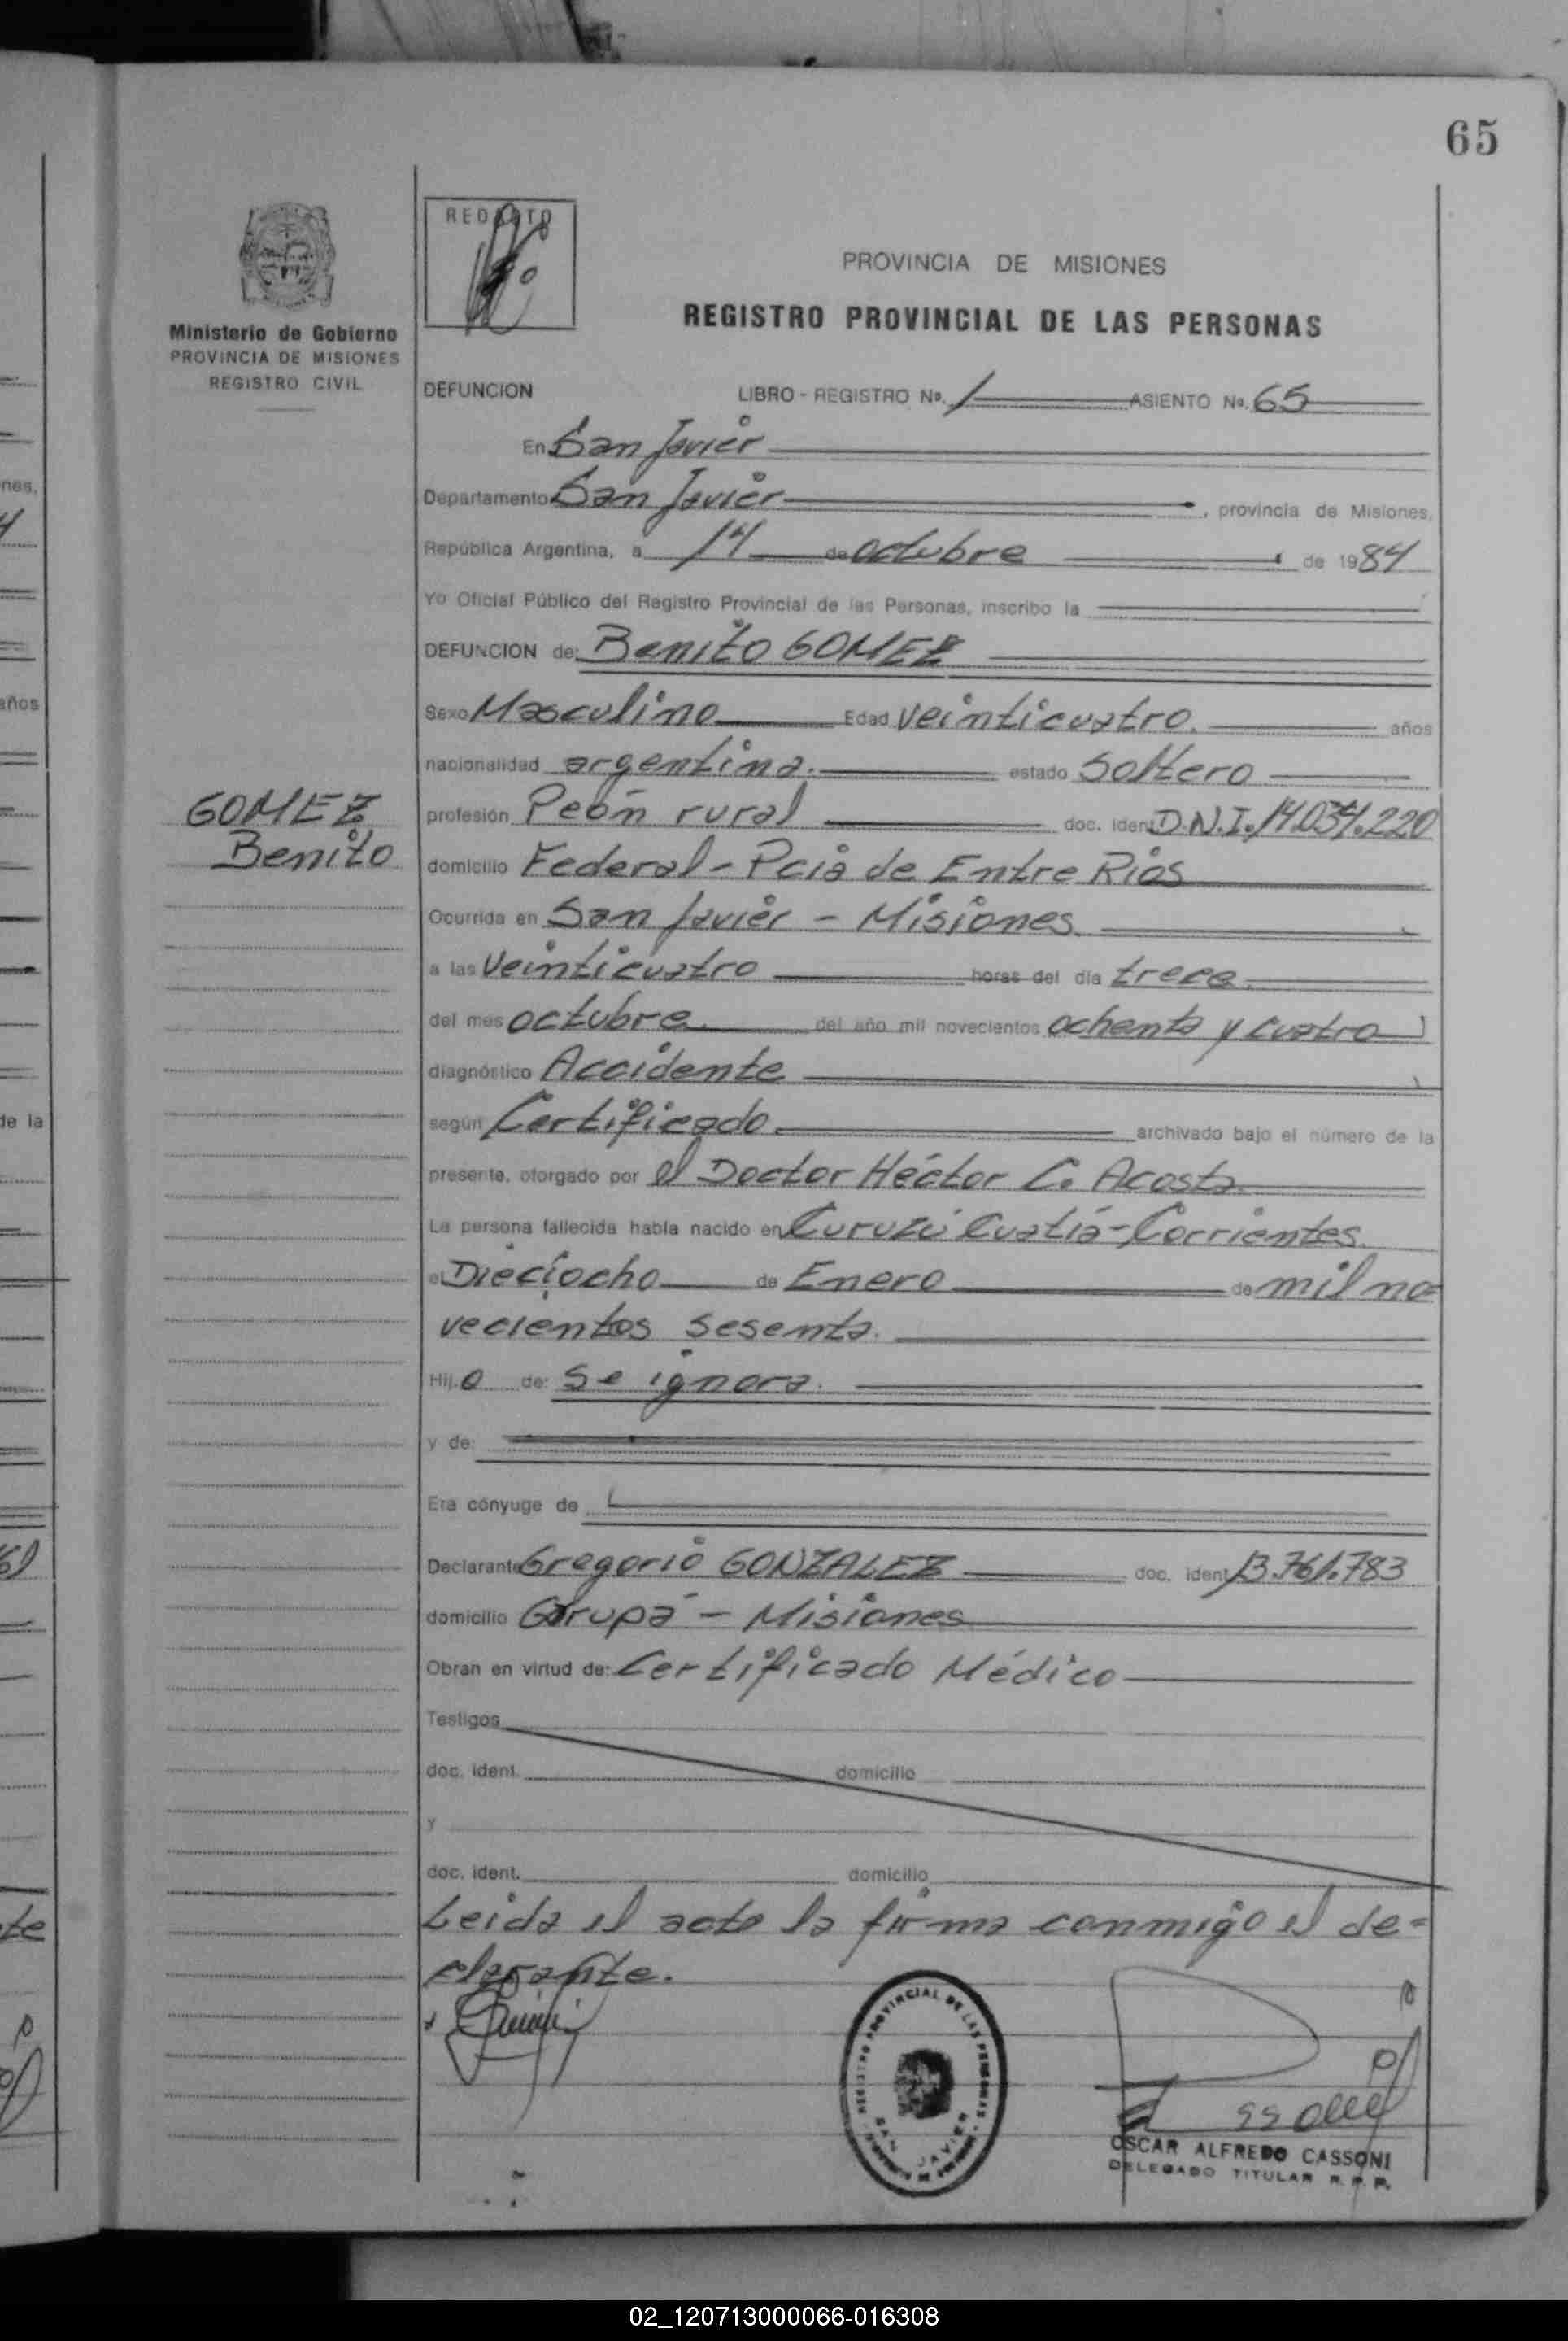 65
REDACTO
PROVINCIA DE MISIONES
REGISTRO PROVINCIAL DE LAS PERSONAS
Ministerio de Gobierno
PROVINCIA DE MISIONES
REGISTRO CIVIL
DEFUNCION LIBRO - REGISTRO Nº. 1 ASIENTO Nº. 65
En San Javier
Departamento San Javier, provincia de Misiones,
República Argentina, a 14 de octubre de 1984
Yo Oficial Público del Registro Provincial de las Personas, inscribo la
DEFUNCION de: Benito GOMEZ
Sexo Masculino Edad veinticuatro. años
nacionalidad argentina. estado Soltero
GOMEZ
Benito
profesión Peón rural doc. ident. D.N.I. 14.034.220
domicilio Federal - Pcia de Entre Rios
Ocurrida en San Javier - Misiones
a las veinticuatro horas del día trece
del mes octubre del año mil novecientos ochenta y cuatro
diagnóstico Accidente
según Certificado archivado bajo el número de la
presente, otorgado por el Doctor Héctor C. Acosta
La persona fallecida había nacido en Curuzú Cuatiá - Corrientes
el Dieciocho de Enero de mil no=
vecientos sesenta.
Hijo de: se ignora.
y de:
Era cónyuge de
Declarante Gregorio GONZALEZ doc. ident. 13.761.783
domicilio Garupá - Misiones
Obran en virtud de: Certificado Médico
Testigos
doc. ident. domicilio
y
doc. ident. domicilio
Leida el acto la firma conmigo el de=
clarante.
REGISTRO PROVINCIAL DE LAS PERSONAS
SAN JAVIER
OSCAR ALFREDO CASSONI
DELEGADO TITULAR R.P.P.
nes,
años
de la
te
02_120713000066-016308